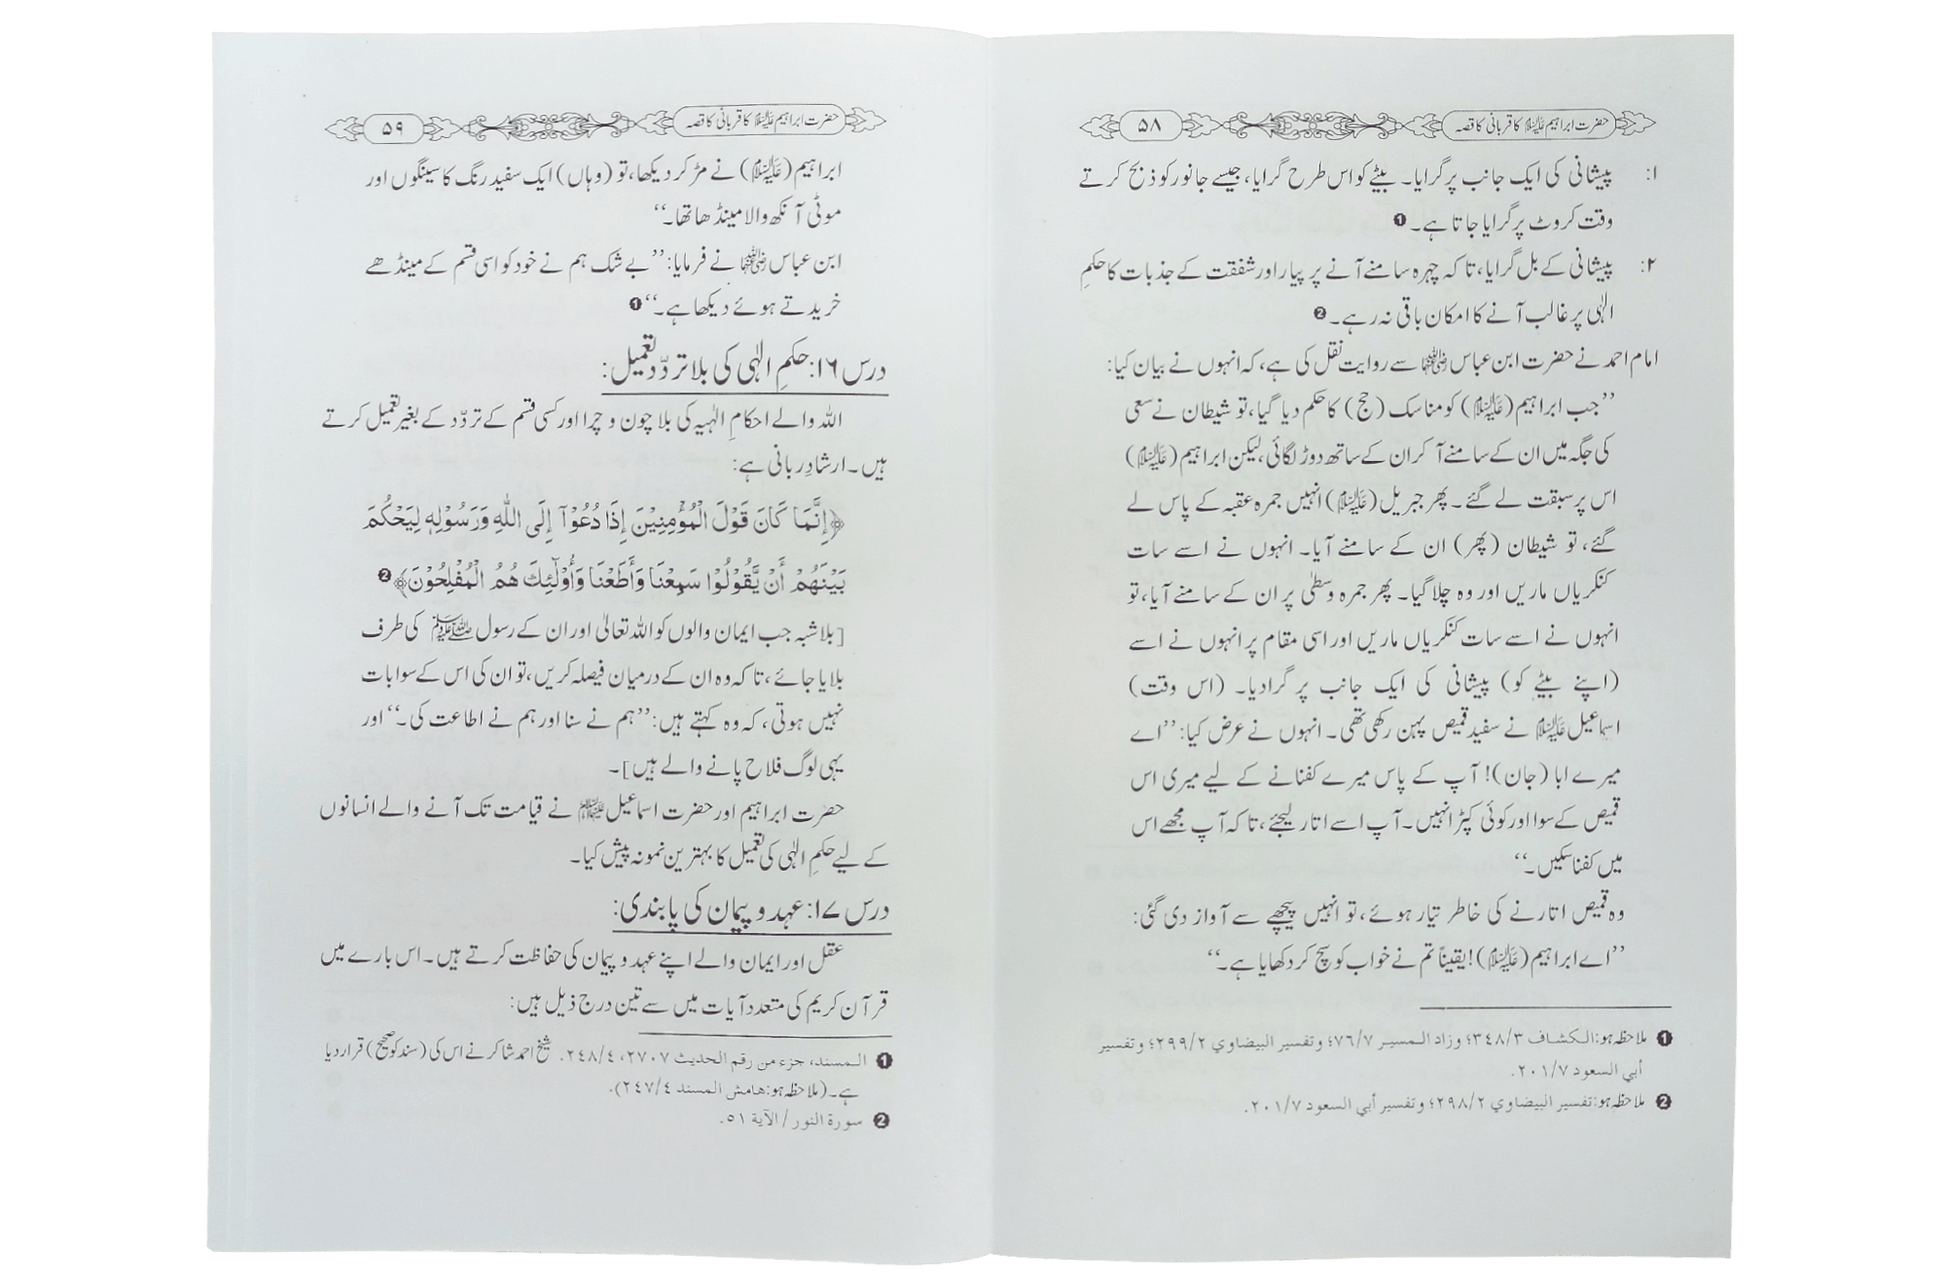 حضرت ابراہیم علیہ السلام کا قربانی کا قصہ ۵۸
۱: پیشانی کی ایک جانب پر گرایا۔ بیٹے کو اس طرح گرایا، جیسے جانور کو ذبح کرتے
وقت کروٹ پر گرایا جاتا ہے۔ ❶
۲: پیشانی کے بل گرایا، تاکہ چہرہ سامنے آنے پر پیار اور شفقت کے جذبات کا حکمِ
الٰہی پر غالب آنے کا امکان باقی نہ رہے۔ ❷
امام احمد نے حضرت ابن عباس رضی اللہ عنہما سے روایت نقل کی ہے، کہ انہوں نے بیان کیا:
’’جب ابراہیم (علیہ السلام) کو مناسک (حج) کا حکم دیا گیا، تو شیطان نے سعی
کی جگہ میں ان کے سامنے آ کر ان کے ساتھ دوڑ لگائی، لیکن ابراہیم (علیہ السلام)
اس پر سبقت لے گئے۔ پھر جبریل (علیہ السلام) انہیں جمرہ عقبہ کے پاس لے
گئے، تو شیطان (پھر) ان کے سامنے آیا۔ انہوں نے اسے سات
کنکریاں ماریں اور وہ چلا گیا۔ پھر جمرہ وسطیٰ پر ان کے سامنے آیا، تو
انہوں نے اسے سات کنکریاں ماریں اور اسی مقام پر انہوں نے اسے
(اپنے بیٹے کو) پیشانی کی ایک جانب پر گرا دیا۔ (اس وقت)
اسماعیل علیہ السلام نے سفید قمیص پہن رکھی تھی۔ انہوں نے عرض کیا: ’’اے
میرے ابا (جان)! آپ کے پاس میرے کفنانے کے لیے میری اس
قمیص کے سوا اور کوئی کپڑا نہیں۔ آپ اسے اتار لیجئے، تاکہ آپ مجھے اس
میں کفنا سکیں۔‘‘
وہ قمیص اتارنے کی خاطر تیار ہوئے، تو انہیں پیچھے سے آواز دی گئی:
’’اے ابراہیم (علیہ السلام)! یقیناً تم نے خواب کو سچ کر دکھایا ہے۔‘‘
❶ ملاحظہ ہو: الکشاف ۳/۳۴۸؛ وزاد المسیر ۷/۷۶؛ وتفسیر البیضاوي ۲/۲۹۹؛ وتفسیر
أبي السعود ۷/۲۰۱.
❷ ملاحظہ ہو: تفسیر البیضاوي ۲/۲۹۸؛ وتفسیر أبي السعود ۷/۲۰۱.
حضرت ابراہیم علیہ السلام کا قربانی کا قصہ ۵۹
ابراہیم (علیہ السلام) نے مڑ کر دیکھا، تو (وہاں) ایک سفید رنگ کا سینگوں اور
موٹی آنکھ والا مینڈھا تھا۔‘‘
ابن عباس رضی اللہ عنہما نے فرمایا: ’’بے شک ہم نے خود کو اسی قسم کے مینڈھے
خریدتے ہوئے دیکھا ہے۔‘‘ ❶
درس ۱۶: حکمِ الٰہی کی بلا تردّد تعمیل:
اللہ والے احکامِ الٰہیہ کی بلا چون و چرا اور کسی قسم کے تردّد کے بغیر تعمیل کرتے
ہیں۔ ارشادِ ربانی ہے:
﴿إِنَّمَا كَانَ قَوْلَ الْمُؤْمِنِيْنَ إِذَا دُعُوْٓا إِلَى اللّٰهِ وَرَسُوْلِهٖ لِيَحْكُمَ
بَيْنَهُمْ أَنْ يَّقُوْلُوْا سَمِعْنَا وَأَطَعْنَا وَأُوْلٰٓئِكَ هُمُ الْمُفْلِحُوْنَ﴾ ❷
[بلاشبہ جب ایمان والوں کو اللہ تعالیٰ اور ان کے رسول ﷺ کی طرف
بلایا جائے، تاکہ وہ ان کے درمیان فیصلہ کریں، تو ان کی اس کے سوا بات
نہیں ہوتی، کہ وہ کہتے ہیں: ’’ہم نے سنا اور ہم نے اطاعت کی۔‘‘ اور
یہی لوگ فلاح پانے والے ہیں]۔
حضرت ابراہیم اور حضرت اسماعیل علیہما السلام نے قیامت تک آنے والے انسانوں
کے لیے حکمِ الٰہی کی تعمیل کا بہترین نمونہ پیش کیا۔
درس ۱۷: عہد و پیمان کی پابندی:
عقل اور ایمان والے اپنے عہد و پیمان کی حفاظت کرتے ہیں۔ اس بارے میں
قرآن کریم کی متعدد آیات میں سے تین درج ذیل ہیں:
❶ المسند، جزء من رقم الحدیث ۲۷۰۷، ۴/۲۴۸. شیخ احمد شاکر نے اس کی (سند کو صحیح) قرار دیا
ہے۔ (ملاحظہ ہو: ھامش المسند ۴/۲۴۷).
❷ سورة النور / الآیة ۵۱.